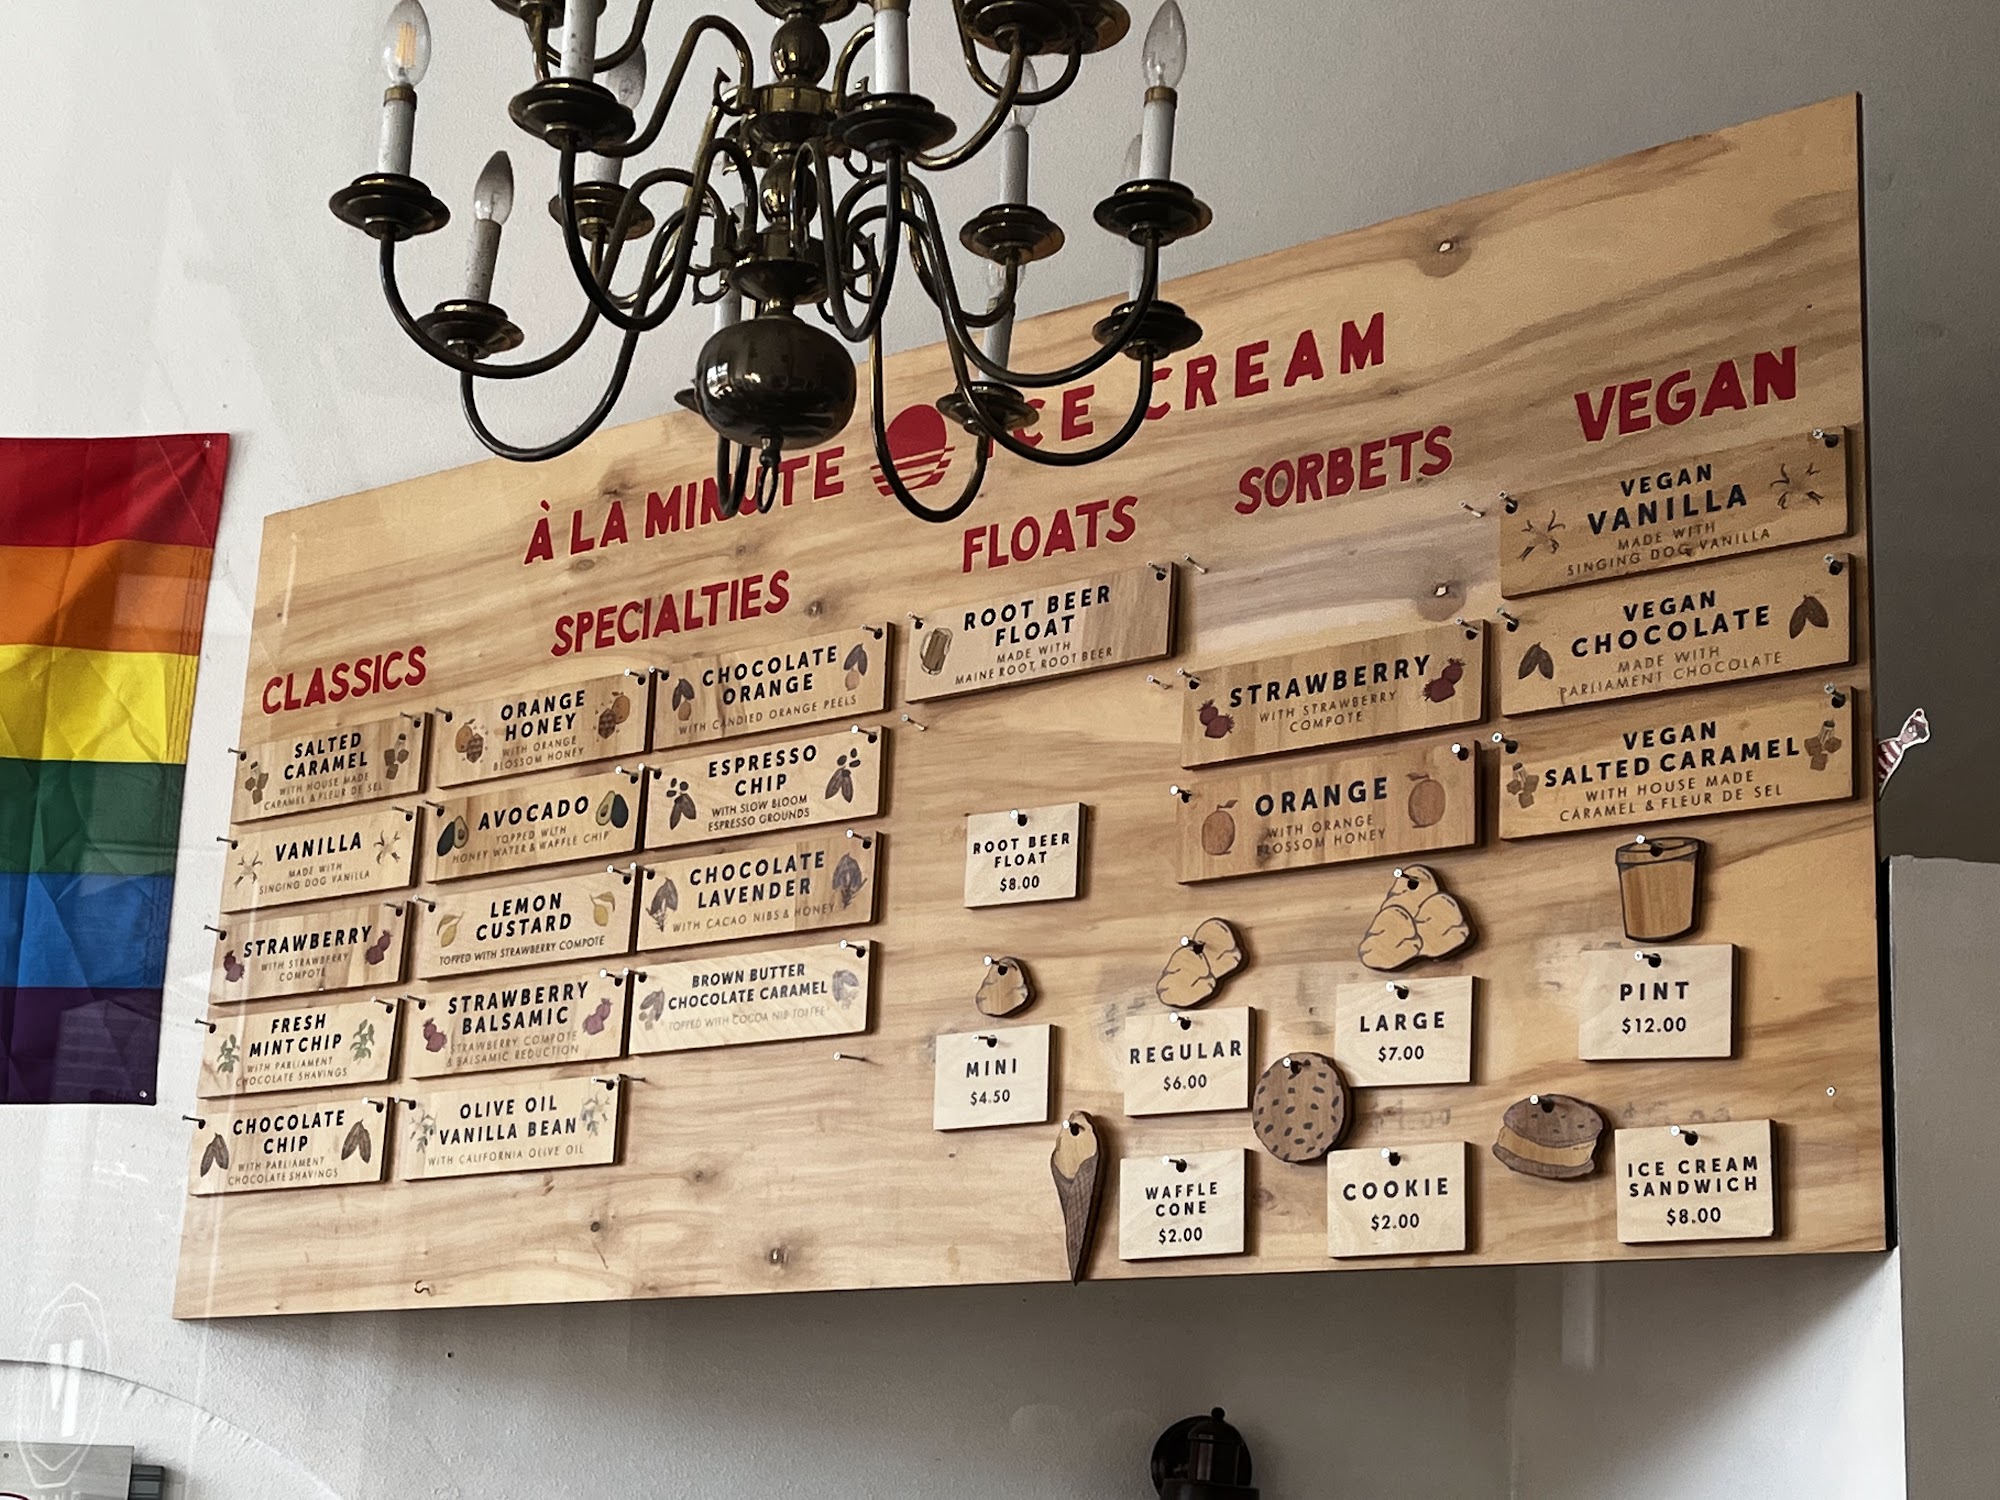 À LA MINUTE ICE CREAM
CLASSICS
SALTED
CARAMEL
WITH HOUSE MADE
CARAMEL & FLEUR DE SEL
VANILLA
MADE WITH
SINGING DOG VANILLA
STRAWBERRY
WITH STRAWBERRY
COMPOTE
FRESH
MINT CHIP
WITH PARLIAMENT
CHOCOLATE SHAVINGS
CHOCOLATE
CHIP
WITH PARLIAMENT
CHOCOLATE SHAVINGS
SPECIALTIES
ORANGE
HONEY
WITH ORANGE
BLOSSOM HONEY
AVOCADO
TOPPED WITH
HONEY WATER & WAFFLE CHIP
LEMON
CUSTARD
TOPPED WITH STRAWBERRY COMPOTE
STRAWBERRY
BALSAMIC
STRAWBERRY COMPOTE
& BALSAMIC REDUCTION
OLIVE OIL
VANILLA BEAN
WITH CALIFORNIA OLIVE OIL
CHOCOLATE
ORANGE
WITH CANDIED ORANGE PEELS
ESPRESSO
CHIP
WITH SLOW BLOOM
ESPRESSO GROUNDS
CHOCOLATE
LAVENDER
WITH CACAO NIBS & HONEY
BROWN BUTTER
CHOCOLATE CARAMEL
TOPPED WITH COCOA NIB TOFFEE
FLOATS
ROOT BEER
FLOAT
MADE WITH
MAINE ROOT ROOT BEER
SORBETS
STRAWBERRY
WITH STRAWBERRY
COMPOTE
ORANGE
WITH ORANGE
BLOSSOM HONEY
VEGAN
VEGAN
VANILLA
MADE WITH
SINGING DOG VANILLA
VEGAN
CHOCOLATE
MADE WITH
PARLIAMENT CHOCOLATE
VEGAN
SALTED CARAMEL
WITH HOUSE MADE
CARAMEL & FLEUR DE SEL
ROOT BEER
FLOAT
$8.00
MINI
$4.50
REGULAR
$6.00
LARGE
$7.00
PINT
$12.00
WAFFLE
CONE
$2.00
COOKIE
$2.00
ICE CREAM
SANDWICH
$8.00